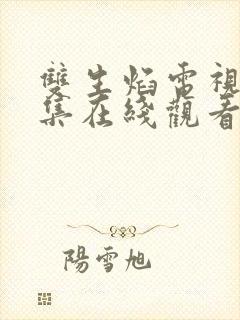 雙生焰電視
集在綫觀看
陽雪旭